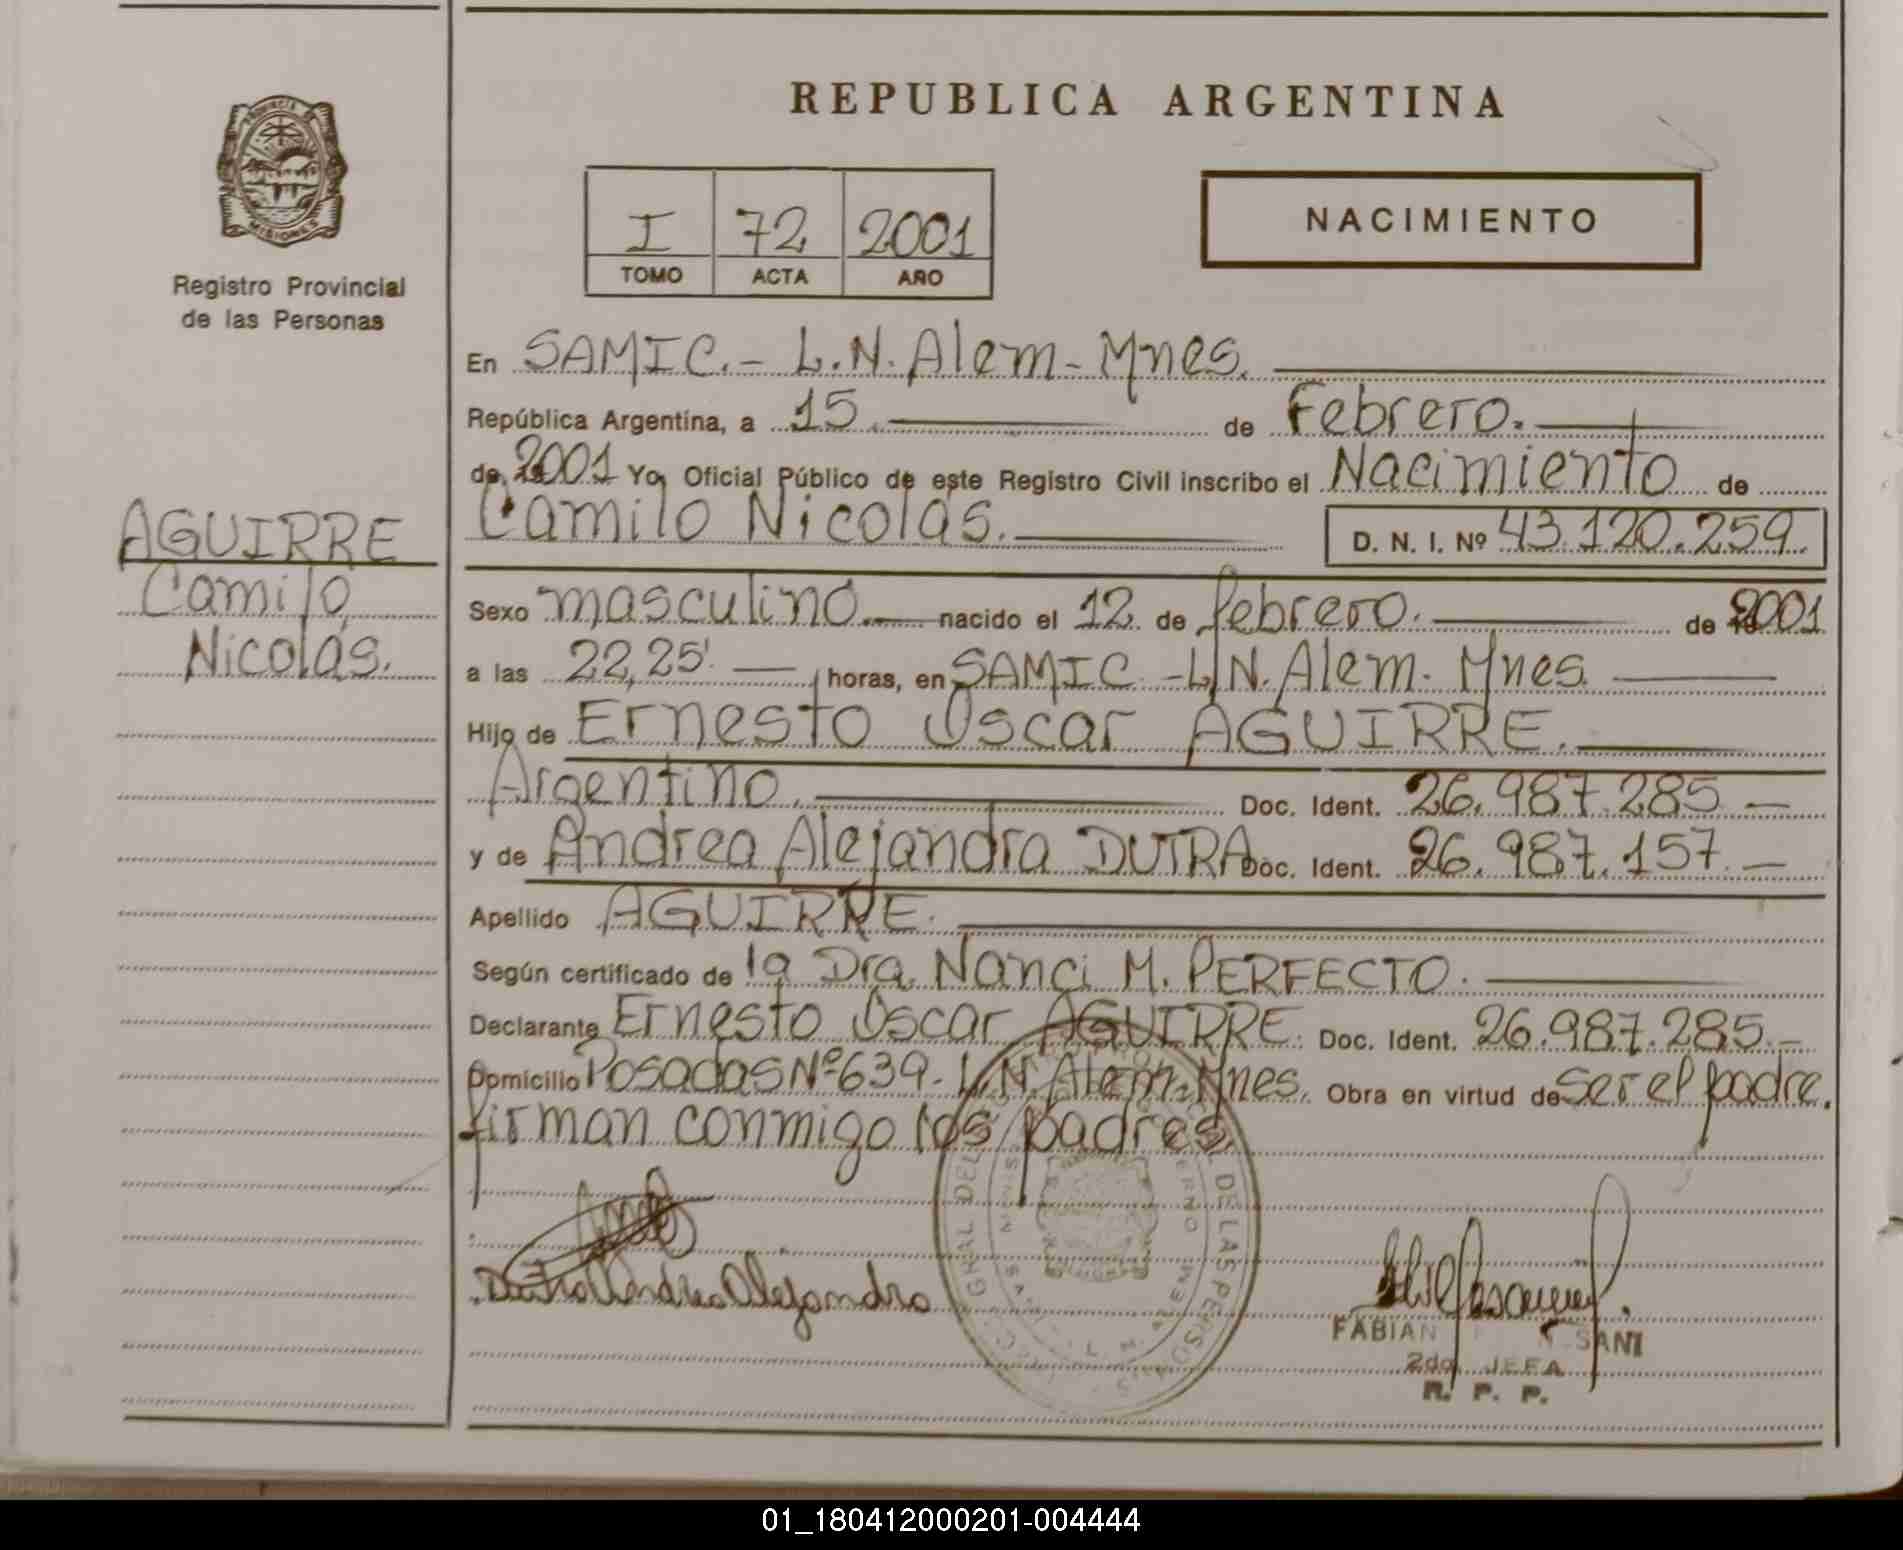 REPUBLICA ARGENTINA
PROVINCIA DE
MISIONES
Registro Provincial
de las Personas
I 72 2001
TOMO ACTA AÑO
NACIMIENTO
AGUIRRE
Camilo
Nicolás.
En SAMIC.- L.N. Alem- Mnes.
República Argentina, a 15. de Febrero.
de 2001 Yo, Oficial Público de este Registro Civil inscribo el Nacimiento de
Camilo Nicolás. D. N. I. Nº 43.120.259.
Sexo masculino. nacido el 12 de febrero. de 2001
a las 22,25'. horas, en SAMIC -L.N. Alem. Mnes.
Hijo de Ernesto Oscar AGUIRRE.
Argentino. Doc. Ident. 26.987.285
y de Andrea Alejandra DUTRA Doc. Ident. 26.987.157
Apellido AGUIRRE.
Según certificado de la Dra. Nanci M. PERFECTO.
Declarante Ernesto Oscar AGUIRRE. Doc. Ident. 26.987.285.
Domicilio Posadas Nº 639- L.N. Alem- Mnes. Obra en virtud de ser el padre.
firman conmigo los padres.
GRAL DEL DE LAS PERSONAS
Dutra Andrea Alejandra
FABIAN SANI
2da. JEFA
R. P. P.
01_180412000201-004444